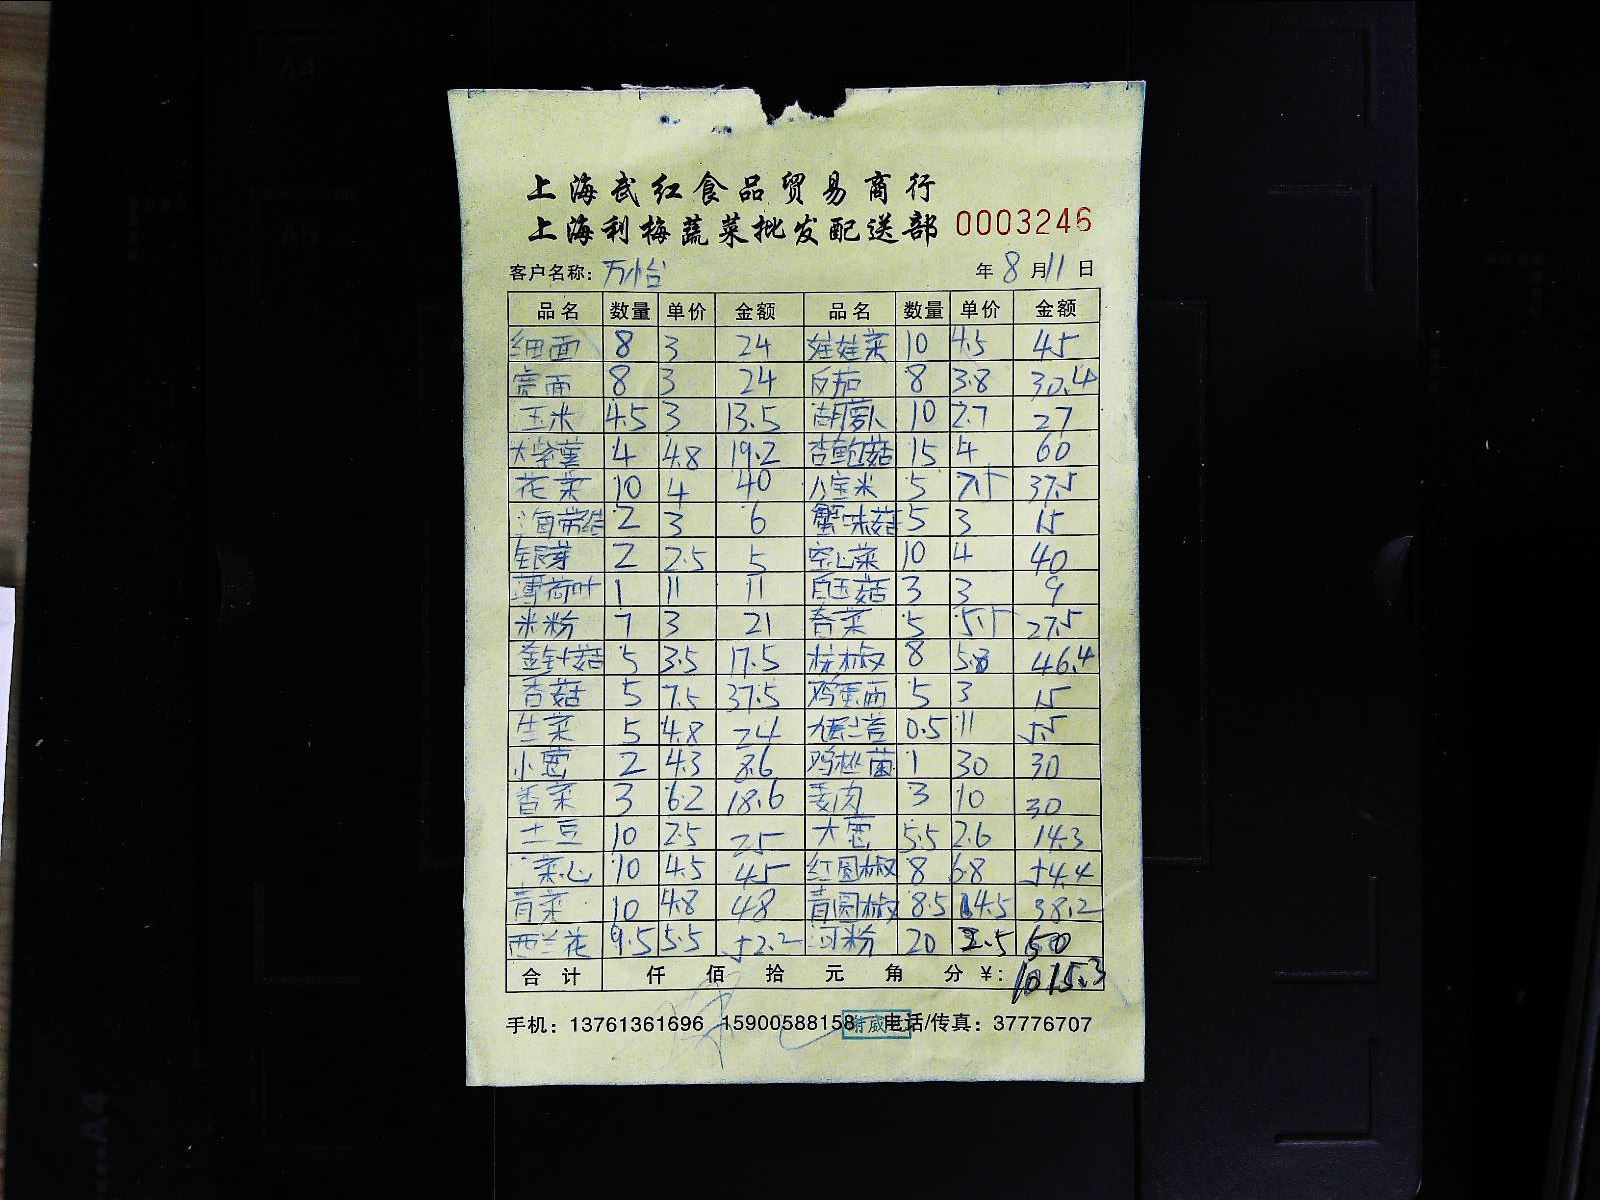 上海武红食品贸易商行
上海利梅蔬菜批发配送部 0003246
客户名称: 万小怡 年 8 月 11 日
品名 数量 单价 金额 品名 数量 单价 金额
细面 8 3 24 娃娃菜 10 4.5 45
宽面 8 3 24 反茄 8 3.8 30.4
玉米 4.5 3 13.5 胡萝卜 10 2.7 27
大紫薯 4 4.8 19.2 杏鲍菇 15 4 60
花菜 10 4 40 八宝米 5 7.5 37.5
海带结 2 3 6 蟹味菇 5 3 15
银芽 2 2.5 5 空心菜 10 4 40
薄荷叶 1 11 11 白玉菇 3 3 9
米粉 7 3 21 香菜 5 5.5 27.5
金针菇 5 3.5 17.5 杭椒 8 5.8 46.4
香菇 5 7.5 37.5 鸡蛋面 5 3 15
生菜 5 4.8 24 0.5 11 5.5
小葱 2 4.3 8.6 鸡枞菌 1 30 30
香菜 3 6.2 18.6 姜肉 3 10 30
土豆 10 2.5 25 大葱 5.5 2.6 14.3
菜心 10 4.5 45 红圆椒 8 6.8 54.4
青菜 10 4.8 48 青圆椒 8.5 4.5 38.2
西兰花 9.5 5.5 52.2 河粉 20 2.5 50
合计 仟 佰 拾 元 角 分 ¥: 1015.3
手机: 13761361696 15900588158 电话/传真: 37776707